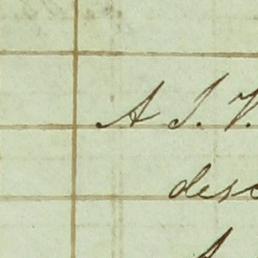 A J. V.
desc